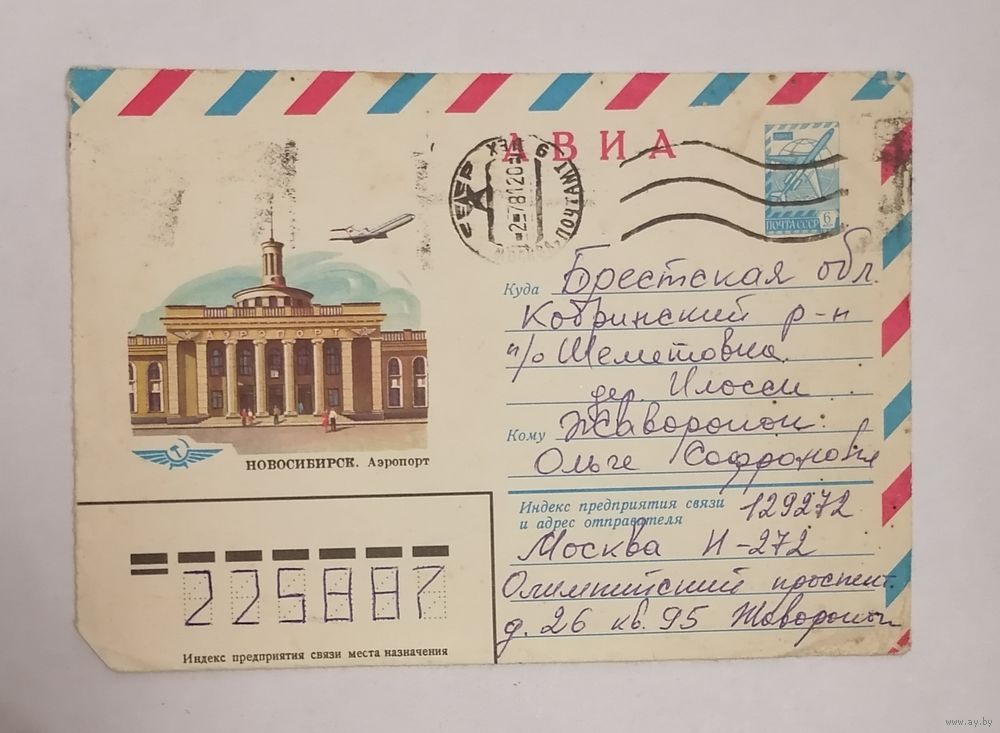 АВИА
ПОЧТАМТ 9 ЦЕХ
СССР
ПОЧТА СССР
6
АЭРОПОРТ
НОВОСИБИРСК. Аэропорт
Куда Брестская обл.
Кобринский р-н
п/о Шеметовка
дер Илоски
Кому Жаворонок
Ольге Софроновне
Индекс предприятия связи
и адрес отправителя 129272
Москва И-272
Олимпийский проспект
д. 26 кв. 95 Жаворонок
225887
Индекс предприятия связи места назначения
www.ay.by